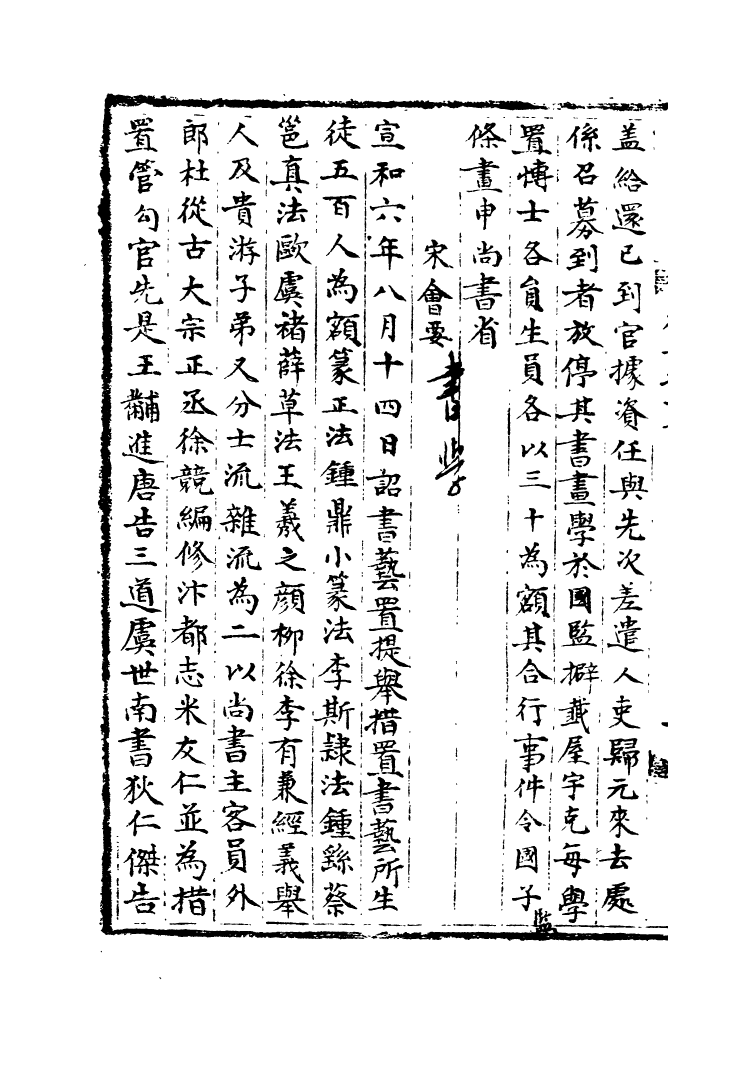 盖給還已到官據資任與先次差遣人吏歸元來去處
係召募到者放停其書畫學於國監擗截屋宇充每學
置博士各員生員各以三十為額其合行事件令國子監
條畫申尚書省
宋會要 書學
宣和六年八月十四日詔書藝置提舉措置書藝所生
徒五百人為額篆正法鍾鼎小篆法李斯隸法鍾繇蔡
邕真法歐虞褚薛草法王羲之顔柳徐李有兼經義舉
人及貴游子弟又分士流雜流為二以尚書主客員外
郎杜從古大宗正丞徐競編修汴都志米友仁並為措
置管勾官先是王黼進唐告三道虞世南書狄仁傑告